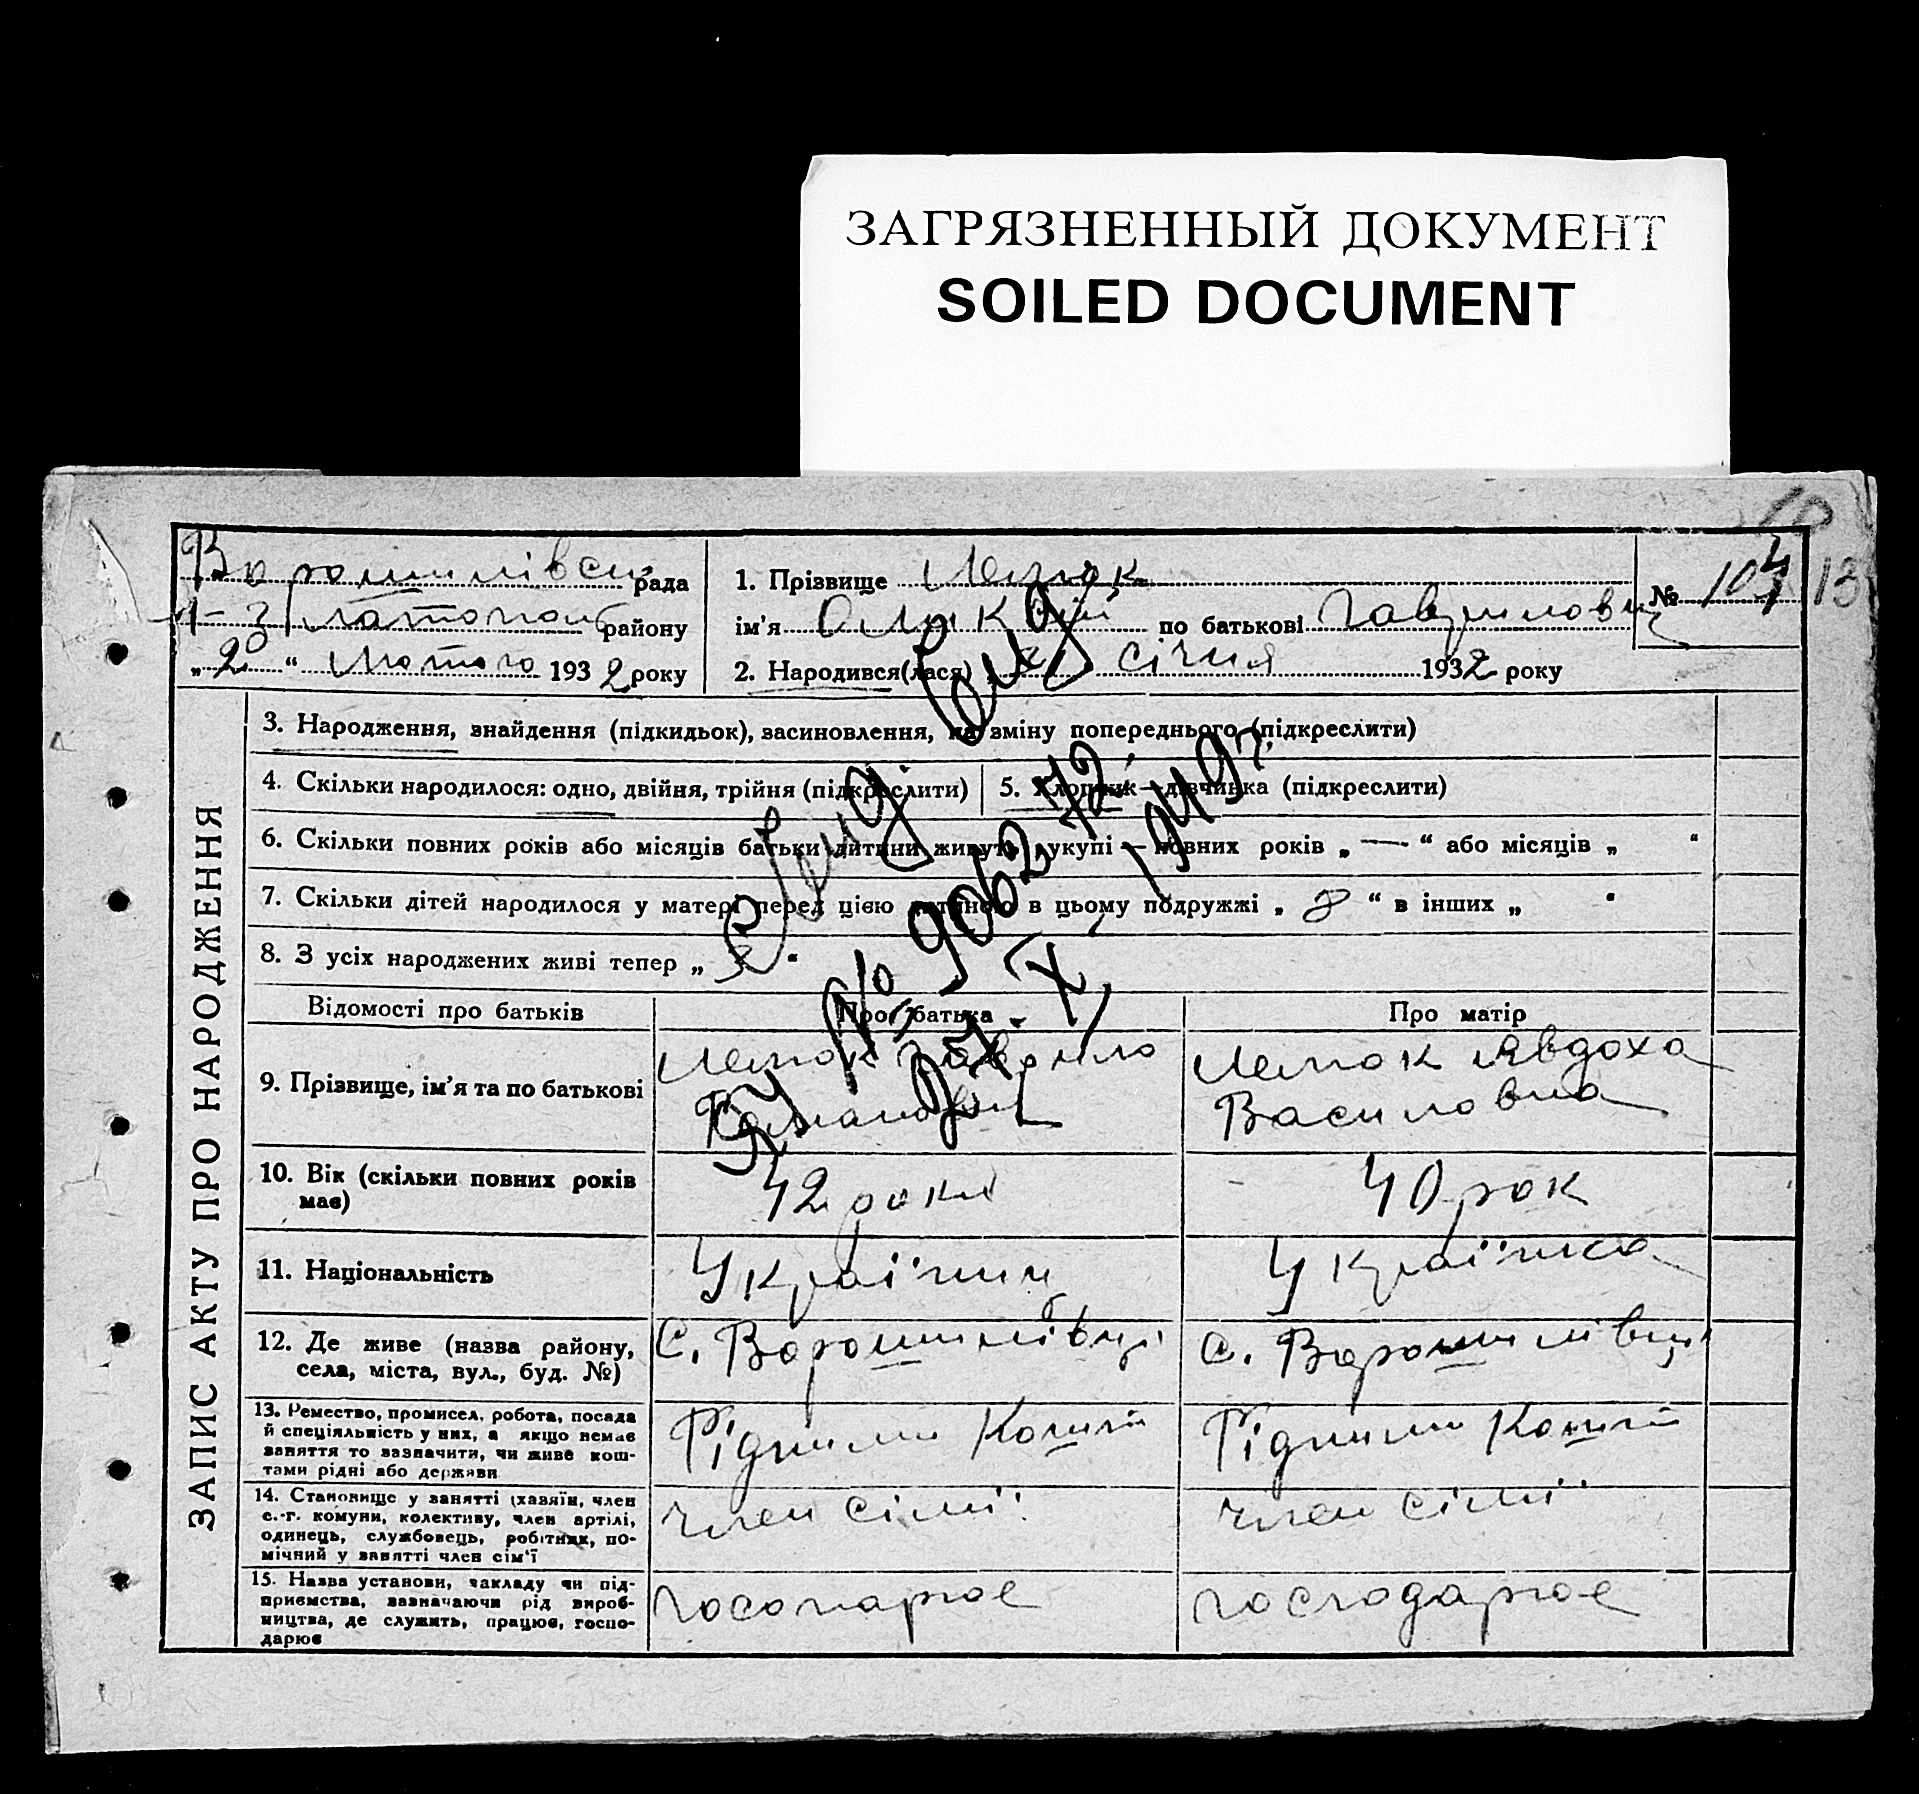 ЗАГРЯЗНЕННЫЙ ДОКУМЕНТ
SOILED DOCUMENT
Ворошилівсь рада
району
„ 20 “ Лютого 1932 року
1. Прізвище
ім'я Олексій по батькові Гаврилович
2. Народився(лася) січня 1932 року
№ 104
13
ЗАПИС АКТУ ПРО НАРОДЖЕННЯ
3. Народження, знайдення (підкидьок), засиновлення, на зміну попереднього (підкреслити)
4. Скільки народилося: одно, двійня, трійня (підкреслити)
5. Хлопчик—дівчинка (підкреслити)
6. Скільки повних років або місяців батьки дитини живуть укупі — повних років „ — “ або місяців „ “
7. Скільки дітей народилося у матері перед цією дитиною в цьому подружжі „ 8 “ в інших „ “
8. З усіх народжених живі тепер „ “
Відомості про батьків
Про батька
Про матір
9. Прізвище, ім'я та по батькові
Гаврило
Романович
Явдоха
Василовна
10. Вік (скільки повних років має)
42 роки
40 рок
11. Національність
Українц
Українка
12. Де живе (назва району, села, міста, вул., буд. №)
С. Ворошилівці
с. Ворошилівці
13. Ремество, промисел, робота, посада
й спеціяльність у них, а якщо немає
заняття то зазначити, чи живе кош-
тами рідні або держави
Рідними Кошті
Рідними Кошті
14. Становище у занятті (хазяїн, член
с.-г. комуни, колективу, член артілі,
одинець, службовець, робітник, по-
мічний у занятті член сім'ї
член сімії
член сімії
15. Назва установи, закладу чи під-
приємства, зазначаючи рід вироб-
ництва, де служить, працює, госпо-
дарює
госопарює
господарює
№ 906272
1949